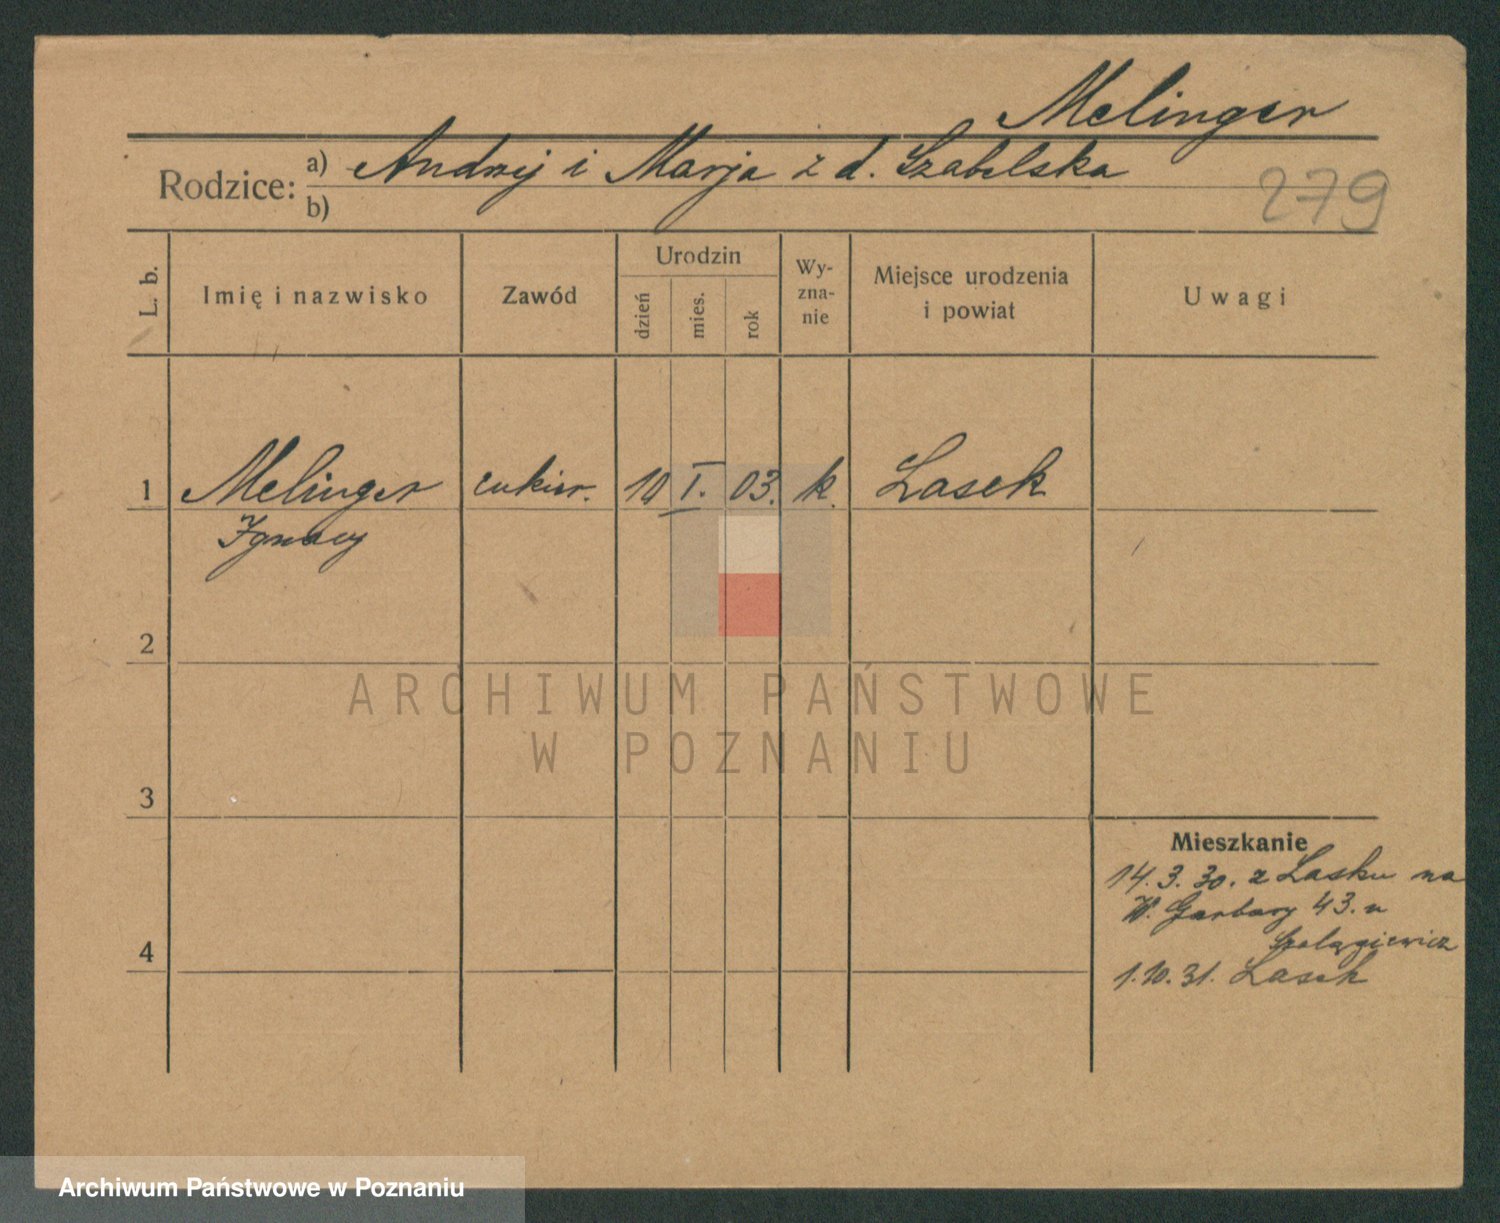 Melinger
Rodzice: a) Andrzej i Marja z d. Szabelska
b)
279
L. b.
Imię i nazwisko
Zawód
Urodzin
dzień
mies.
rok
Wy-
zna-
nie
Miejsce urodzenia
i powiat
Uwagi
1 Melinger cukier. 10 I. 03. k. Lasek
Ignacy
2
ARCHIWUM PAŃSTWOWE
W POZNANIU
3
Mieszkanie
14.3.30. z Lasku na
W. Garbary 43. u
Szelągiewicz
4
1.10.31. Lasek
Archiwum Państwowe w Poznaniu